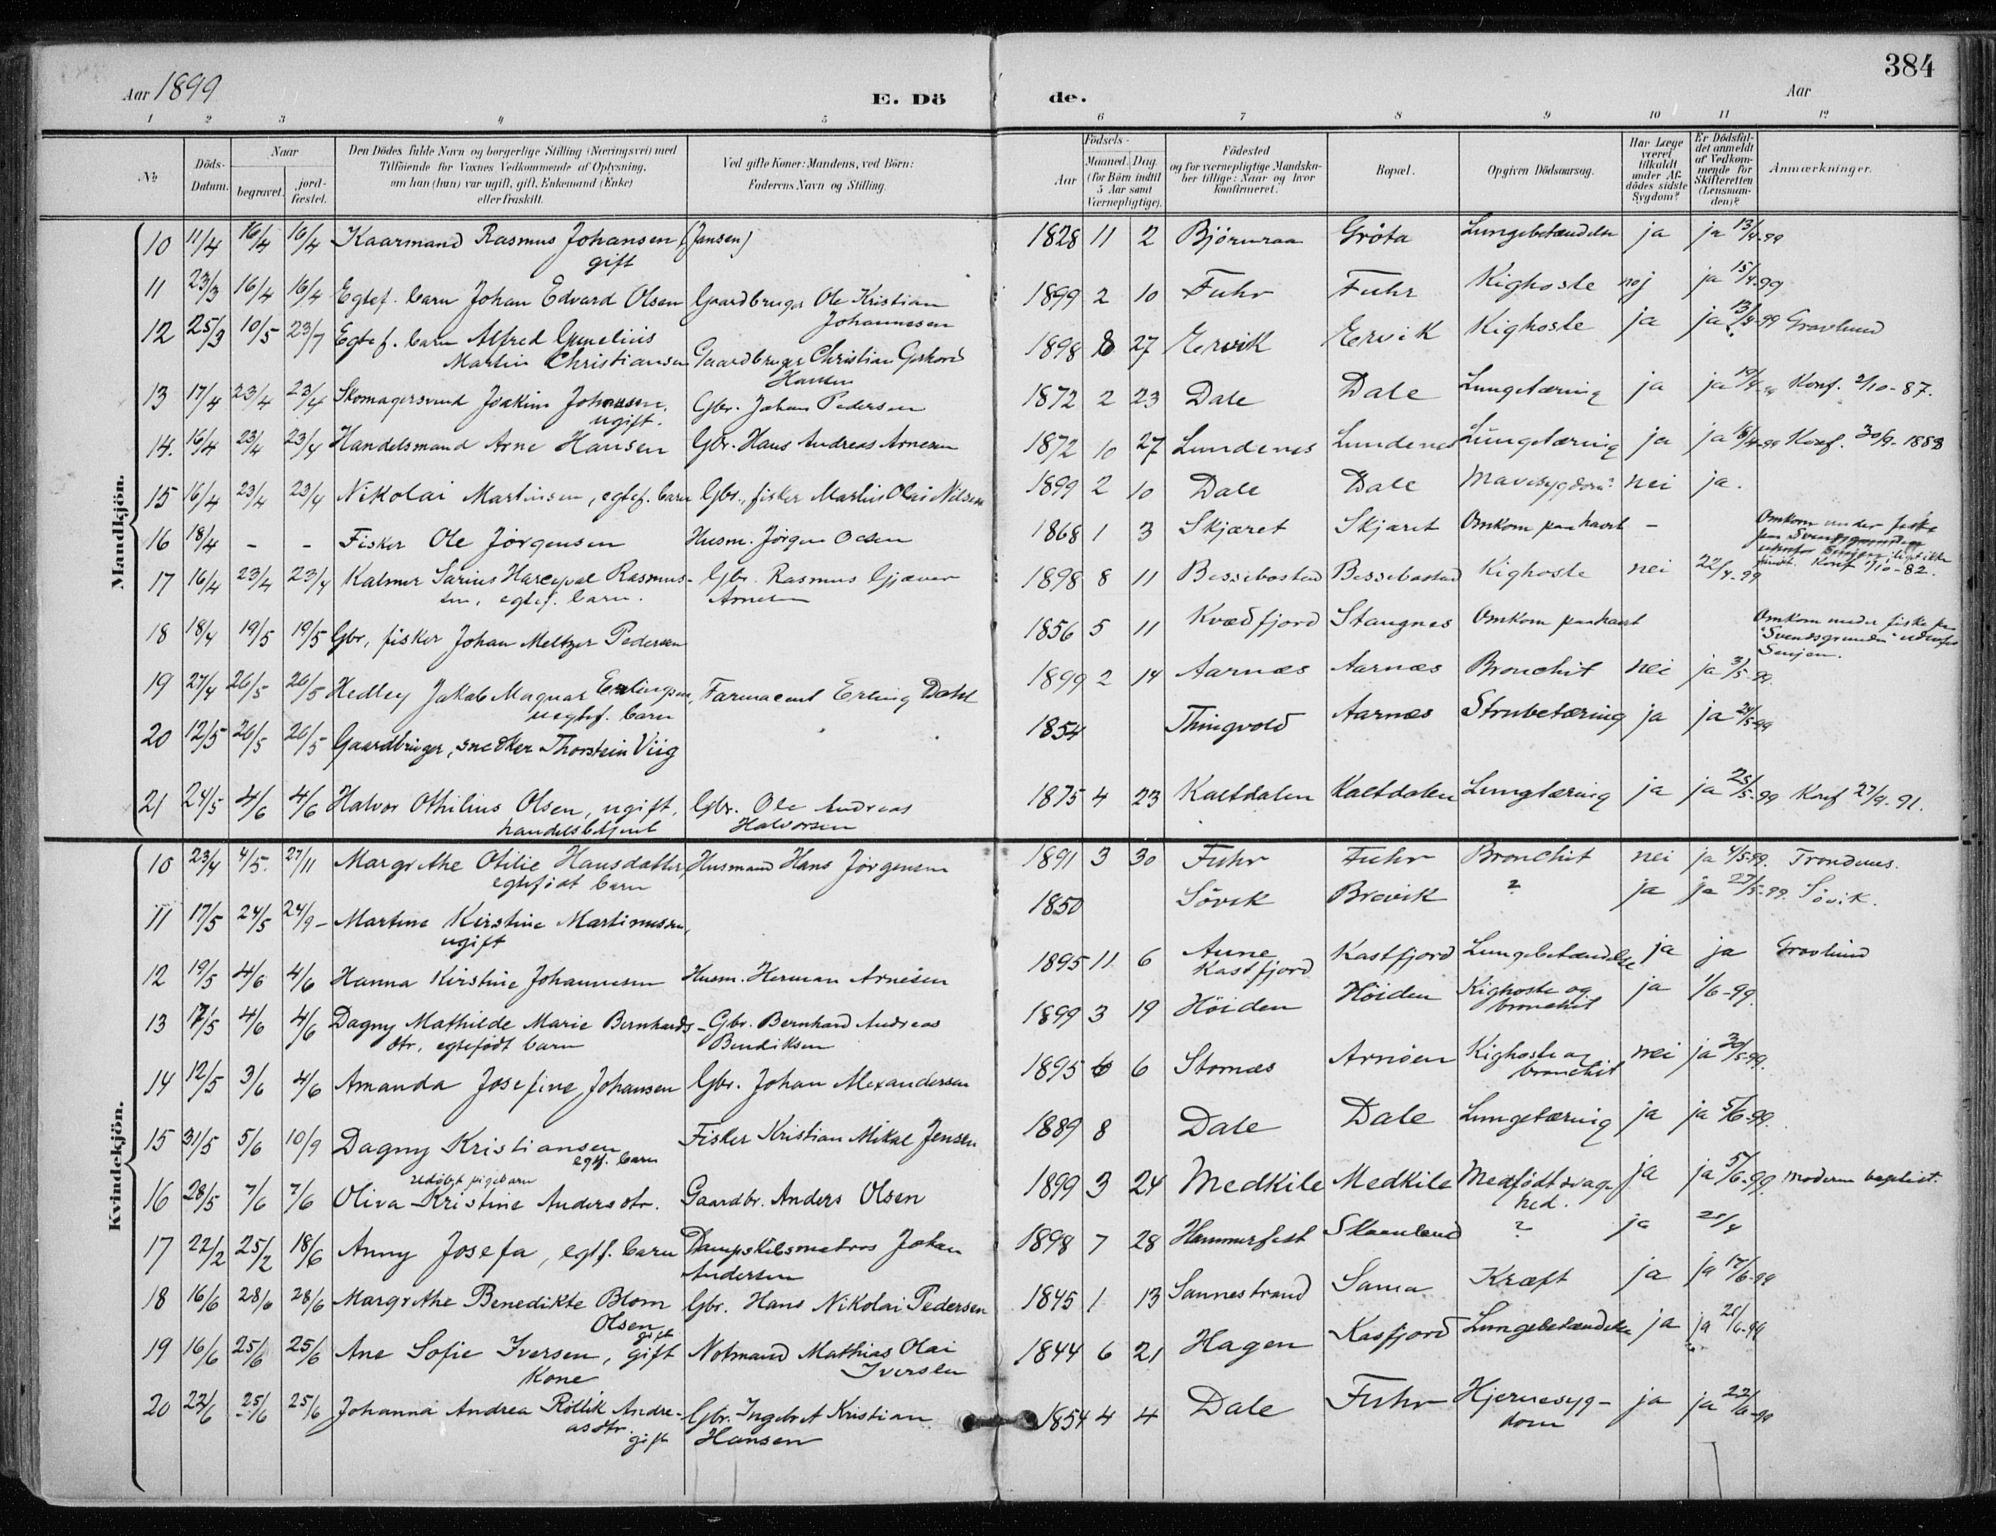 384
Aar 1899
E. Dö de.
Aar
1 2 3 4 5 6 7 8 9 10 11 12
№
Döds-Datum.
Naar
begravet.
jord-fæstet.
Den Dödes fulde Navn og borgerlige Stilling (Næringsvei) med
Tilföiende for Voxnes Vedkommende af Oplysning,
om han (hun) var ugift, gift, Enkemand (Enke)
eller fraskilt.
Ved gifte Koner: Mandens, ved Börn:
Faderens Navn og Stilling.
Födsels-
Aar
Maaned. Dag.
(for Börn indtil
5 Aar samt
Værnepligtige).
Födested
og for værnepligtige Mandska-
ber tillige: Naar og hvor
konfirmeret.
Bopæl.
Opgiven Dödsaarsag.
Har Læge
været
tilkaldt
under Af-
dödes sidste
Sygdom?
Er Dödsfal-
det anmeldt
af Vedkom-
mende for
Skifteretten
(Lensman-
den)?
Anmærkninger.
Mandkjön.
10 11/4 16/4 16/4 Kaarmand Rasmus Johansen (Jansen) 1828 11 2 Björnraa Gröta Lungebetændelse ja ja 13/4-99
gift
11 23/3 16/4 16/4 Egtef. barn Johan Edvard Olsen Gaardbruger Ole Kristian 1899 2 10 Fuhr Fuhr Kighoste nej ja 15/4-99
Johannesen
12 25/3 10/5 23/7 Egtef. barn Alfred Cornelius 1898 8 27 Ervik Ervik Kighoste ja ja 13/4-99 Gravlund
Martin Christiansen Gaardbruger Christian
Hansen
13 17/4 23/4 23/4 Skomagersvend Joakim Johansen. Gbr. Johan Pedersen 1872 2 23 Dale Dale Lungetæring ja ja Konf. 2/10-87.
ugift.
14. 16/4 23/4 23/4 Handelsmand Arne Hansen Gbr. Hans Andreas Arnesen 1872 10 27 Lundenes Lundenes Lungetæring ja ja 18/4-99 Konf. 30/9-1888
15 16/4 23/4 23/4 Nikolai Martinsen, egtef. barn Gbr., fisker Martin Olai Nilsen 1899 2 10 Dale Dale Mavesygdom? nei ja.
16 18/4 - - Fisker Ole Jörgensen Husm. Jörgen Olsen 1868 1 3 Skjæret Skjæret Omkom paa havet - Omkom under fiske
paa Svendsgrunden
udenfor Senjen; liget ikke
fundet. Konf 1/10-82.
17 16/4 23/4 23/4 Kalmer Sarius Rasmus- Gbr. Rasmus Gjæver 1898 8 11 Bessebostad Bessebostad Kighoste nei 22/4-99
sen, egtef. barn. Arnesen
18 18/4 19/5 19/5 Gbr, fisker Johan Meltzer Pedersen 1856 5 11 Kvædfjord Stangnes Omkom paa havet Omkom under fiske paa
"Svendsgrunden" udenfor
Senjen.
19 27/4 26/5 26/5 Hedley Jakob Magnar Erlingsen, Farmaceut Erling Dahl 1899 2 14 Aarnæs Aarnæs Bronchit nei ja 3/5-99.
uegtef. barn
20 12/5 26/5 26/5 Gaardbruger, snedker Thorstein Viig 1854 Thingvold Aarnæs Strubetæring ja ja 24/5-99
21 24/5 4/6 4/6 Halvor Othilius Olsen, ugift, Gbr. Ole Andreas 1875 4 23 Kaltdalen Kaltdalen Lungtæring ja ja 25/5-99 Konf 27/9. 91.
handelsbetjent Halvorsen
Kvindekjön.
10 23/4 4/5. 27/11 Margrethe Otilie Hansdatter, Husmand Hans Jörgensen 1891 3 30 Fuhr Fuhr Bronchit nei ja 4/5-99. Trondenes.
egtefödt barn
11 17/5 24/5 24/9- Martine Kirstine Martinussen, 1850 Sövik Brevik ? ja ja 27/5-99. Sövik.
ugift
12 19/5 4/6 4/6 Hanna Kirstine Johannesen Husm. Herman Arnesen 1895 11 6 Aune Kastfjord Lungebetændelse ja ja Gravlund
Kastfjord
13 17/5 4/6 4/6 Dagny Mathilde Marie Bernhards- Gbr. Bernhard Andreas 1899 3 19 Höiden Höiden Kighoste og ja 1/6-99.
dtr, egtefödt barn Bendiksen bronchit
14 12/5 3/6 4/6 Amanda Josefine Johansen Gbr. Johan Alexandersen 1895 6 6 Stornæs Arnöen Kighoste og nei ja 30/5-99.
bronchit
15 31/5 5/6 10/9 Dagny Kristiansen Fisker Kristian Mikal Jensen 1889 8 Dale Dale Lungetæring ja ja 5/6-99.
egtf. barn
uedøbt pigebarn
16 28/5 7/6 7/6 Oliva Kristine Andersdtr. Gaardbr. Anders Olsen 1899 3 24 Medkile Medkile Medfödt svag- ja ja 5/6-99. Moderen baptist.
hed.
17 22/2 25/2 18/6 Anny Josefa, egtf. barn Dampskibsmatros Johan 1898 7 28 Hammerfest Skaanland ? ja
Andersen
18 16/6 28/6 28/6 Margrethe Benedikte Blom Gbr. Hans Nikolai Pedersen 1845 1 13 Sannestrand Sama Kræft ja ja 17/6-99
Olsen
gift
19 16/6 25/6 25/6 Ane Sofie Iversen, gift Notmand Mathias Olai 1844 6 21 Hagen Kasfjord Lungebetændelse ja ja 21/6-99
Kone Iversen
20 22/6 25/6 25/6 Johanna Andrea Röllik Andre- Gbr. Ingebret Kristian 1854 4 4 Dale Fuhr Hjernesyg- ja ja 22/6-99
asdtr. Hansen dom
gift